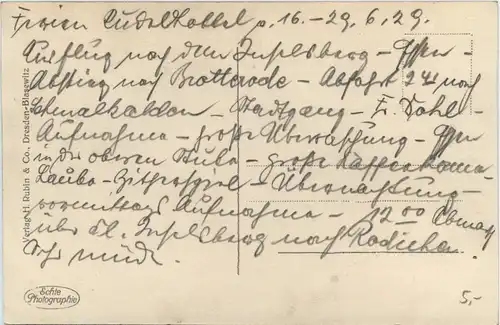 Ferien p. 16. – 29. 6. 29.
Ausflug nach dem Inselsberg – Essen –
Abstieg nach Brotterode – Abfahrt 2 nach
Schmalkalden – Stadtgang – Fr. Dahl –
Aufnahme – große Überraschung – Essen
in der oberen Stube – große Kaffee
Laube – Zitherspiel – Übernachtung –
vormittags Aufnahme – 12 00
über Kl. Inselsberg nach
Sehr müde.
Verlag H. Rubin & Co., Dresden-Blasewitz
Echte
Photographie
5,-